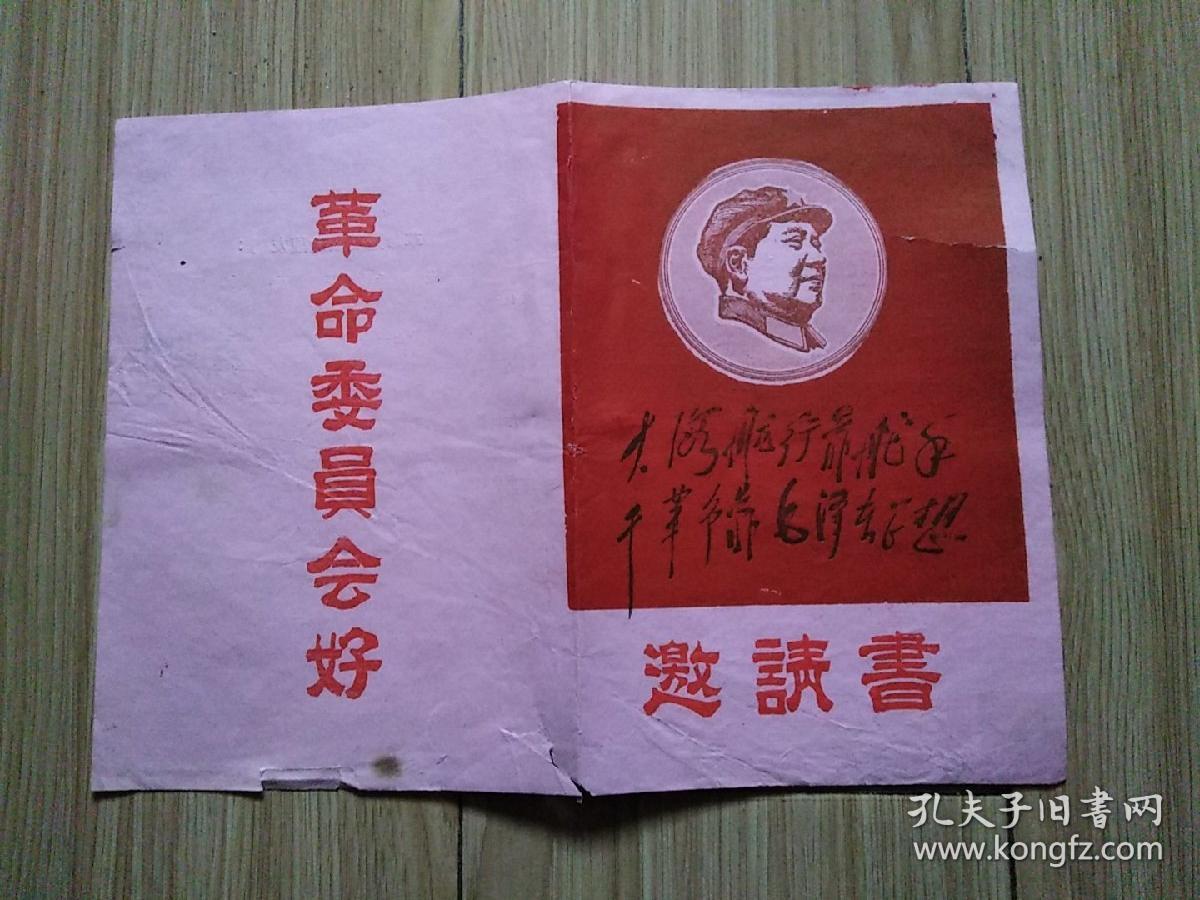 革命委員会好
大海航行靠舵手
干革命靠毛泽东思想
邀請書
孔夫子旧书网
www.kongfz.com